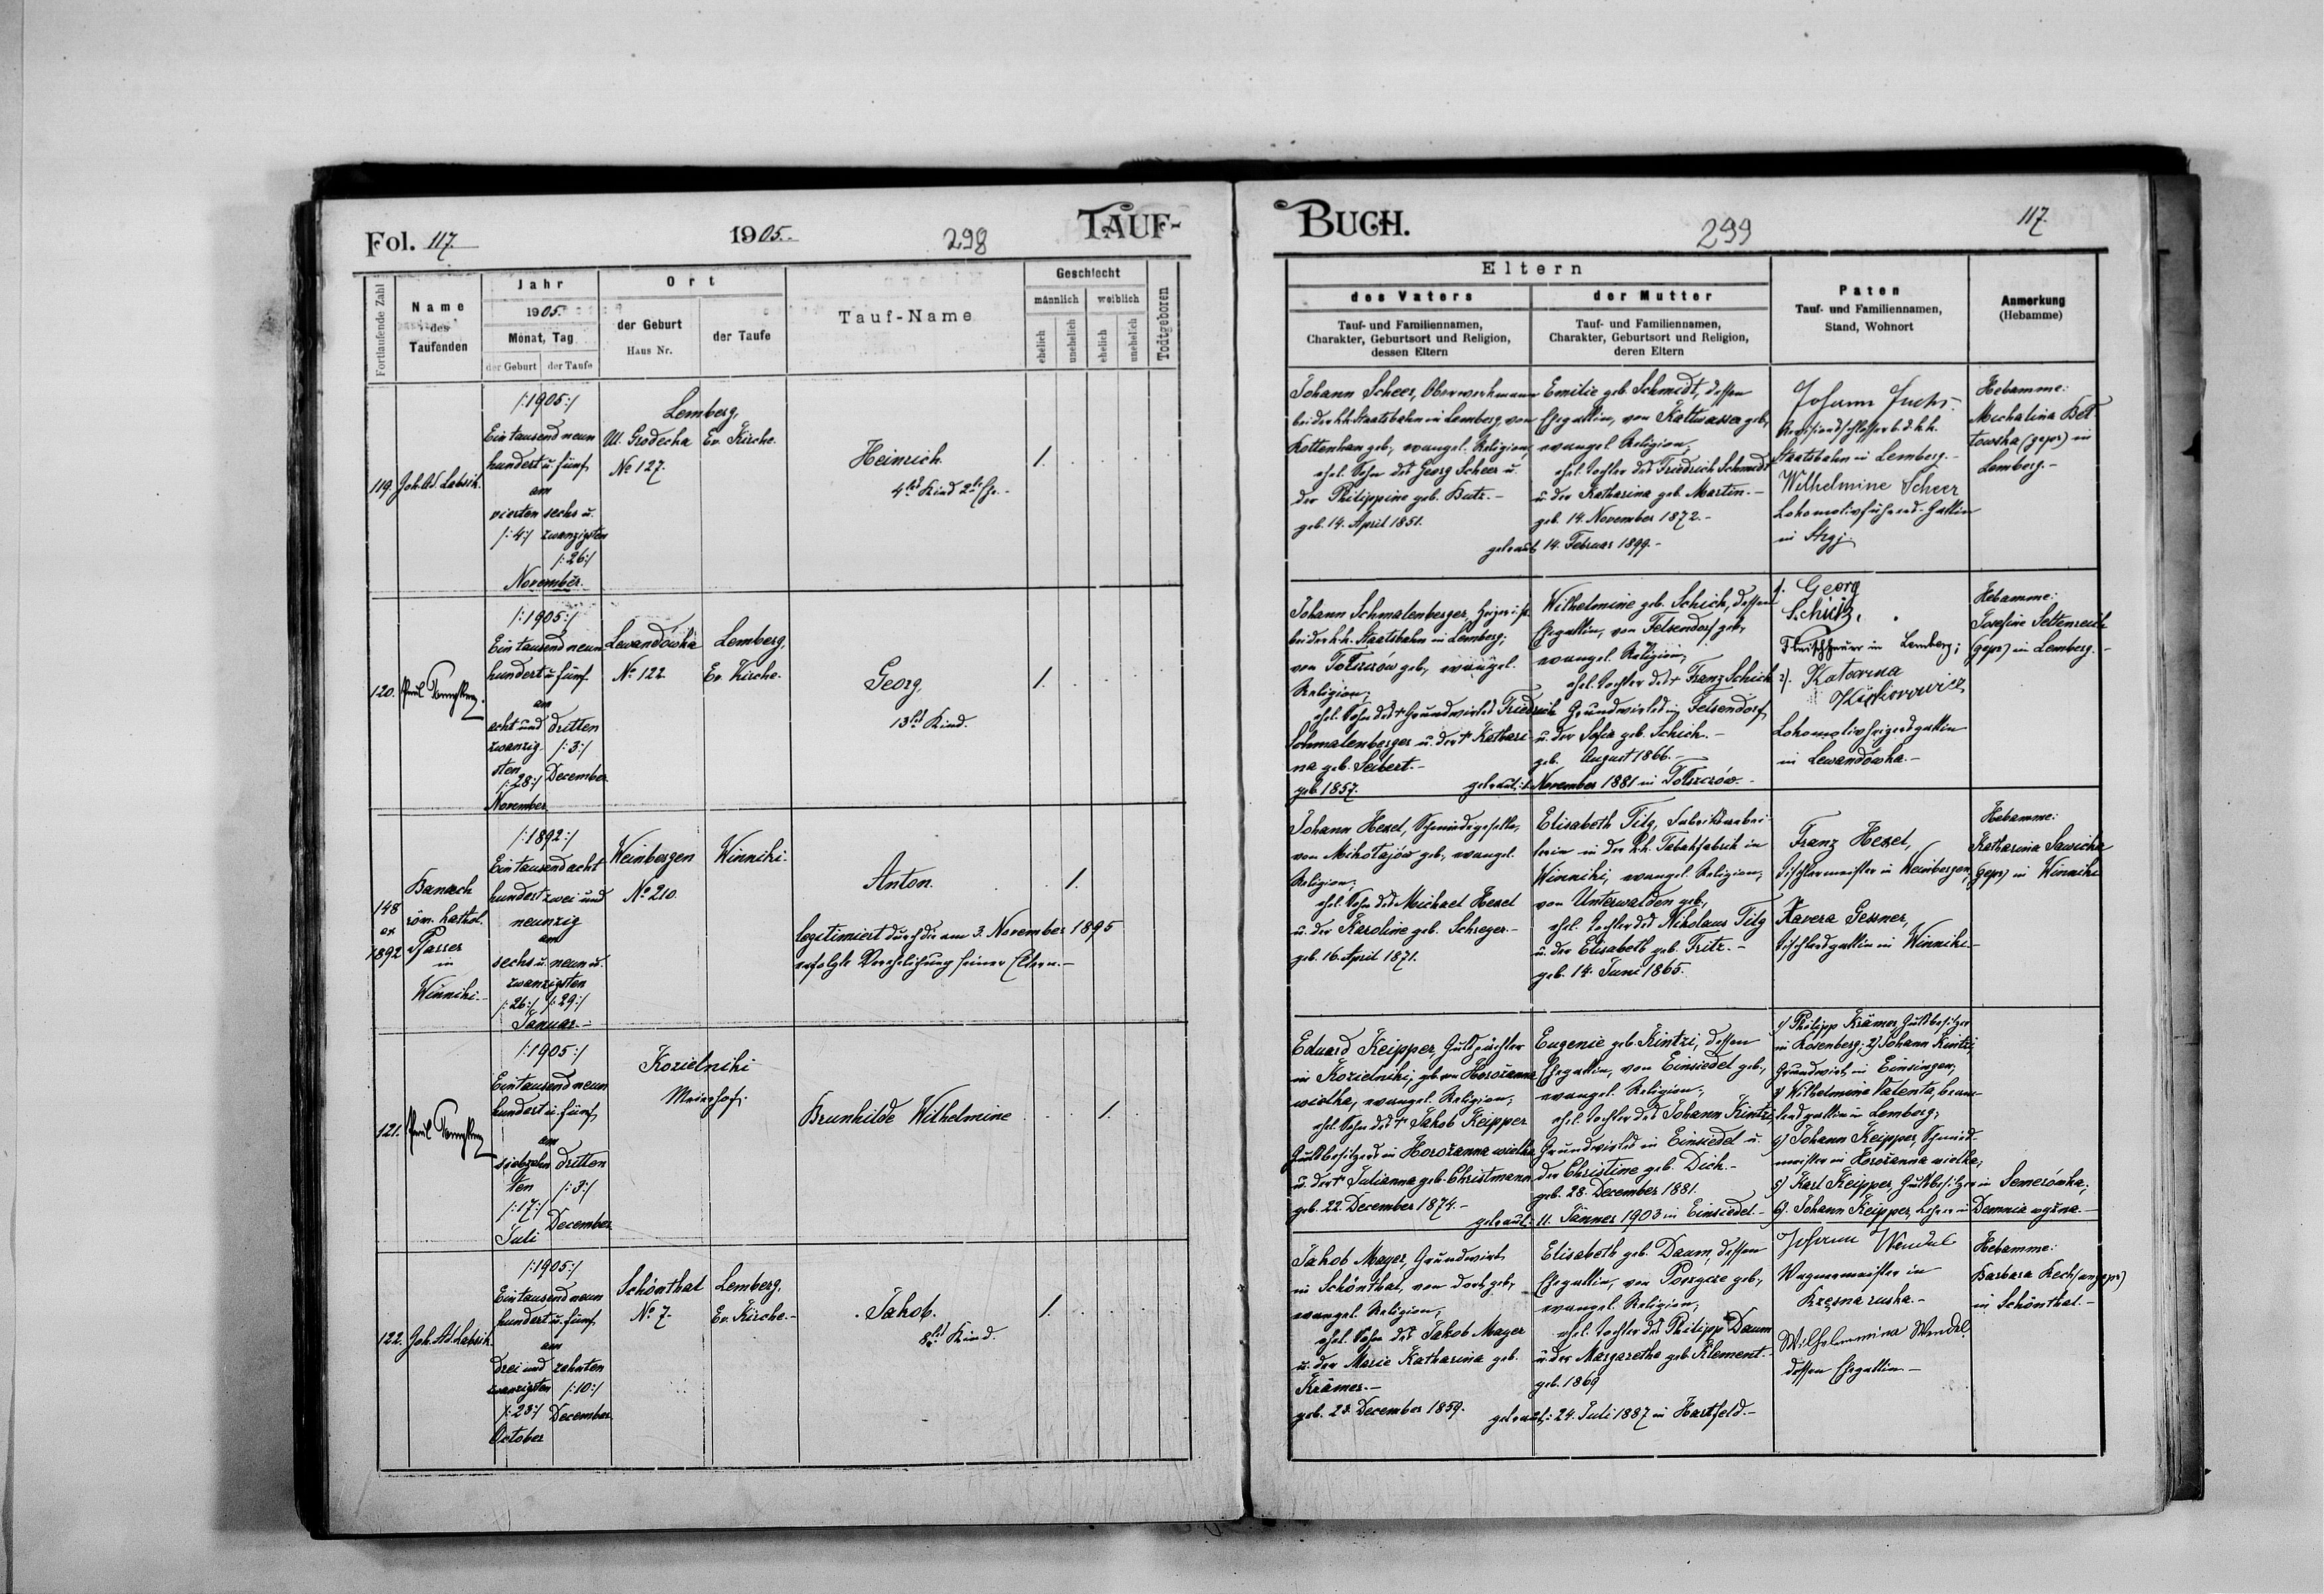 Fol. 117.
1905.
298
TAUF-
Fortlaufende Zahl
Name
des
Taufenden
Jahr
1905.
Monat, Tag
der Geburt
der Taufe
Ort
der Geburt
Haus Nr.
der Taufe
Tauf-Name
Geschlecht
männlich
weiblich
ehelich
unehelich
ehelich
unehelich
Todtgeboren
119.
Joh. Ad. Labsik.
/:1905:/
Ein tausend neun
hundert u. fünf
am
vierten sechs u.
/:4:/ zwanzigsten
/:26:/
November.
Lemberg,
Ul. Grodecka
No 127.
Ev. Kirche.
Heinrich
4tes Kind 2ter Ehe.-
1.
120.
/:1905:/
Ein tausend neun
hundert u. fünf
am
acht und dritten
zwanzig- /:3:/
sten December
/:28:/
November
Lewandówka
No 122
Lemberg,
Ev. Kirche.
Georg,
13tes Kind.
1.
148
ex
1892
röm. kathol.
Pfarrer
in
Winniki.-
/:1892:/
Ein tausend acht
hundert zwei und
neunzig
am
sechs u. neun u.
zwanzigsten
/:26:/ /:29:/
Januar.-
Weinbergen
No 210
Winniki.
Anton.
1.
legitimiert durch die am 3. November 1895
erfolgte Verehelichung seiner Eltern.-
121.
/:1905:/
Ein tausend neun
hundert u. fünf
am
siebzehn dritten
ten /:3:/
/:17:/ December
Juli
Kozielniki
Meierhof.
Brunhilde Wilhelmine
1.
122.
Joh. Ad. Labsik
/:1905:/
Ein tausend neun
hundert u. fünf
am
drei und zehnten
zwanzigsten /:10:/
/:23:/ December
October
Schönthal
No 7.
Lemberg,
Ev. Kirche.-
Jakob.
8tes Kind.
1.
BUCH.
299
117.
Eltern
des Vaters
Tauf- und Familiennamen,
Charakter, Geburtsort und Religion,
dessen Eltern
der Mutter
Tauf- und Familiennamen,
Charakter, Geburtsort und Religion,
deren Eltern
Paten
Tauf- und Familiennamen,
Stand, Wohnort
Anmerkung
(Hebamme)
Johann Scheer, Oberwerkmann
bei der k.k. Staatsbahn in Lemberg, von
Kottenhan geb., evangel. Religion,
ehel. Sohn des Georg Scheer u.
der Philippine geb. Butz.-
geb. 14. April 1851.
Emilie geb. Schmidt, dessen
Ehegattin, von Kaltwasser geb.,
evangel. Religion,
ehel. Tochter des Friedrich Schmidt
u. der Katharina geb. Martin.-
geb. 14. November 1872.-
getraut 14. Februar 1899.-
Johann Fuchs.
Revisionsschlosser b. d. k.k.
Staatsbahn in Lemberg.-
Wilhelmine Scheer
Lokomotivführers-Gattin
in Stryj.
Hebamme:
Michalina
(gepr) in
Lemberg.-
Johann Schmalenberger, Heizer i. P.
bei der k.k. Staatsbahn in Lemberg;
von Tołszczów geb., evangel.
Religion,
ehel. Sohn des + Grundwirtes Friedrich
Schmalenberger u. der + Kathari-
na geb. Seibert.-
geb. 1857.
Wilhelmine geb. Schick, dessen
Ehegattin, von Felsendorf geb.,
evangel. Religion,
ehel. Tochter des + Franz Schick
Grundwirtes in Felsendorf
u. der Sofie geb. Schick.-
geb. August 1866.-
getraut: November 1881 in Tołszczów.-
1. Georg
Schick,
in Lemberg;
2). Katarina
Lokomotivheizersgattin
in Lewandówka.-
Hebamme:
Josefine Seltenreich
(gepr) in Lemberg.-
Johann Hexel, Schmiedgeselle,
von Mikołajów geb., evangel.
Religion,
ehel. Sohn des Michael Hexel
u. der Karoline geb. Schreyer.-
geb. 16. April 1871.
Elisabeth Filg, Fabriksarbei-
terin in der k.k. Tabakfabrik in
Winniki, evangel. Religion,
von Unterwalden geb.,
ehel. Tochter des Nikolaus Filg
u. der Elisabeth geb. Fritz.-
geb. 14. Juni 1865.
Franz Hexel,
Tischlermeister in Weinbergen,
Xavera Gessner,
Tischlersgattin in Winniki.-
Hebamme:
Katharina Sawicka
(gepr) in Winniki
Eduard Keipper, Gutspächter
in Kozielniki, geb. von Horożanna
wielka, evangel. Religion,
ehel. Sohn des + Jakob Keipper
Gutsbesitzers in Horożanna wielka
u. der + Julianna geb. Christmann
geb. 22. December 1874.-
Eugenie geb. Kintzi, dessen
Ehegattin, von Einsiedel geb.,
evangel. Religion,
ehel. Tochter des Johann Kintzi,
Grundwirtes in Einsiedel u.
der Christine geb. Dich.-
geb. 28. December 1881.
getraut: 11. Jänner 1903 in Einsiedel.-
1) Philipp Krämer, Gutsbesitzer
in Rosenberg; 2) Johann Kintzi,
Grundwirt in Einsingen;
3) Wilhelmine Valenta, beam-
tensgattin in Lemberg;
4) Johann Keipper, Schmied-
meister in Horożanna wielka;
5) Karl Keipper, Gutsbesitzer in Semerówka;
6). Johann Keipper, Lehrer in Demnia wyżna.-
Jakob Mayer, Grundwirt
in Schönthal, von dort geb.,
evangel. Religion,
ehel. Sohn des Jakob Mayer
u. der Marie Katharina geb.
Krämer.-
geb. 23. December 1859.
Elisabeth geb. Daum, dessen
Ehegattin, von Porzycze geb.,
evangel. Religion,
ehel. Tochter des Philipp Daum
u. der Margaretha geb. Klement.-
geb. 1869
getraut: 24. Juli 1887 in Hartfeld.-
Johann Wendel
Wagnermeister in
Krzesna ruska.-
Wilhelmmina Wendel
dessen Ehegattin.-
Hebamme:
Barbara Kech (ungepr)
in Schönthal.-